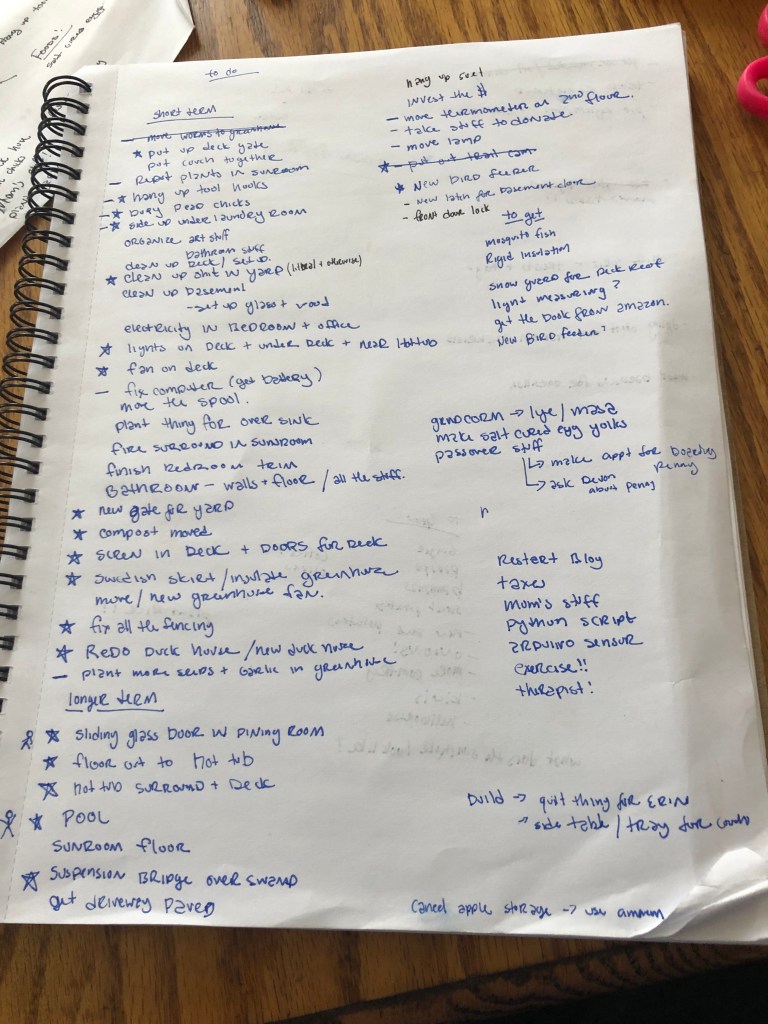 to do
short term
more worms to greenhouse
put up deck gate
put couch together
Repot plants in sunroom
hang up tool hooks
bury dead chicks
side up under laundry room
organize art stuff
bathroom stuff
clean up Deck / set up.
clean up shit in yard (literal + otherwise)
clean up basement
- set up glass + wood
electricity in Bedroom + office
lights on Deck + under Deck + near Hottub
fan on deck
- fix computer (get battery)
move the spool.
plant thing for over sink
fire surround in sunroom
finish Bedroom trim
Bathroom - walls + floor / all the stuff.
new gate for yard
compost moved
screen in Deck + Doors for Deck
Swedish skirt / insulate greenhouse
more / new greenhouse fan.
fix all the fencing
Redo Duck House / new duck house
- plant more seeds + Garlic in greenhouse
longer term
sliding glass Door in Dining Room
floor out to hot tub
hot tub surround + Deck
POOL
sunroom floor
Suspension Bridge over swamp
get driveway paved
hang up
Invest the $
- more thermometers on 2nd floor.
- take stuff to donate
- move lamp
- put out trail cam
New Bird feeder
- New latch for basement door
- front door lock
to get
mosquito fish
Rigid Insulation
snow guard for Deck Roof
light measuring?
get the book from amazon.
New Bird feeder?
→ lye / masa
make salt cured egg yolks
passover stuff
→ make appt for boarding
Penny
→ ask Devon
about penny
Restart Blog
taxes
mom's stuff
python script
arduino sensor
exercise!!
therapist!
Build → quilt thing for ERIN
→ side table / tray for couch
Cancel apple storage → use